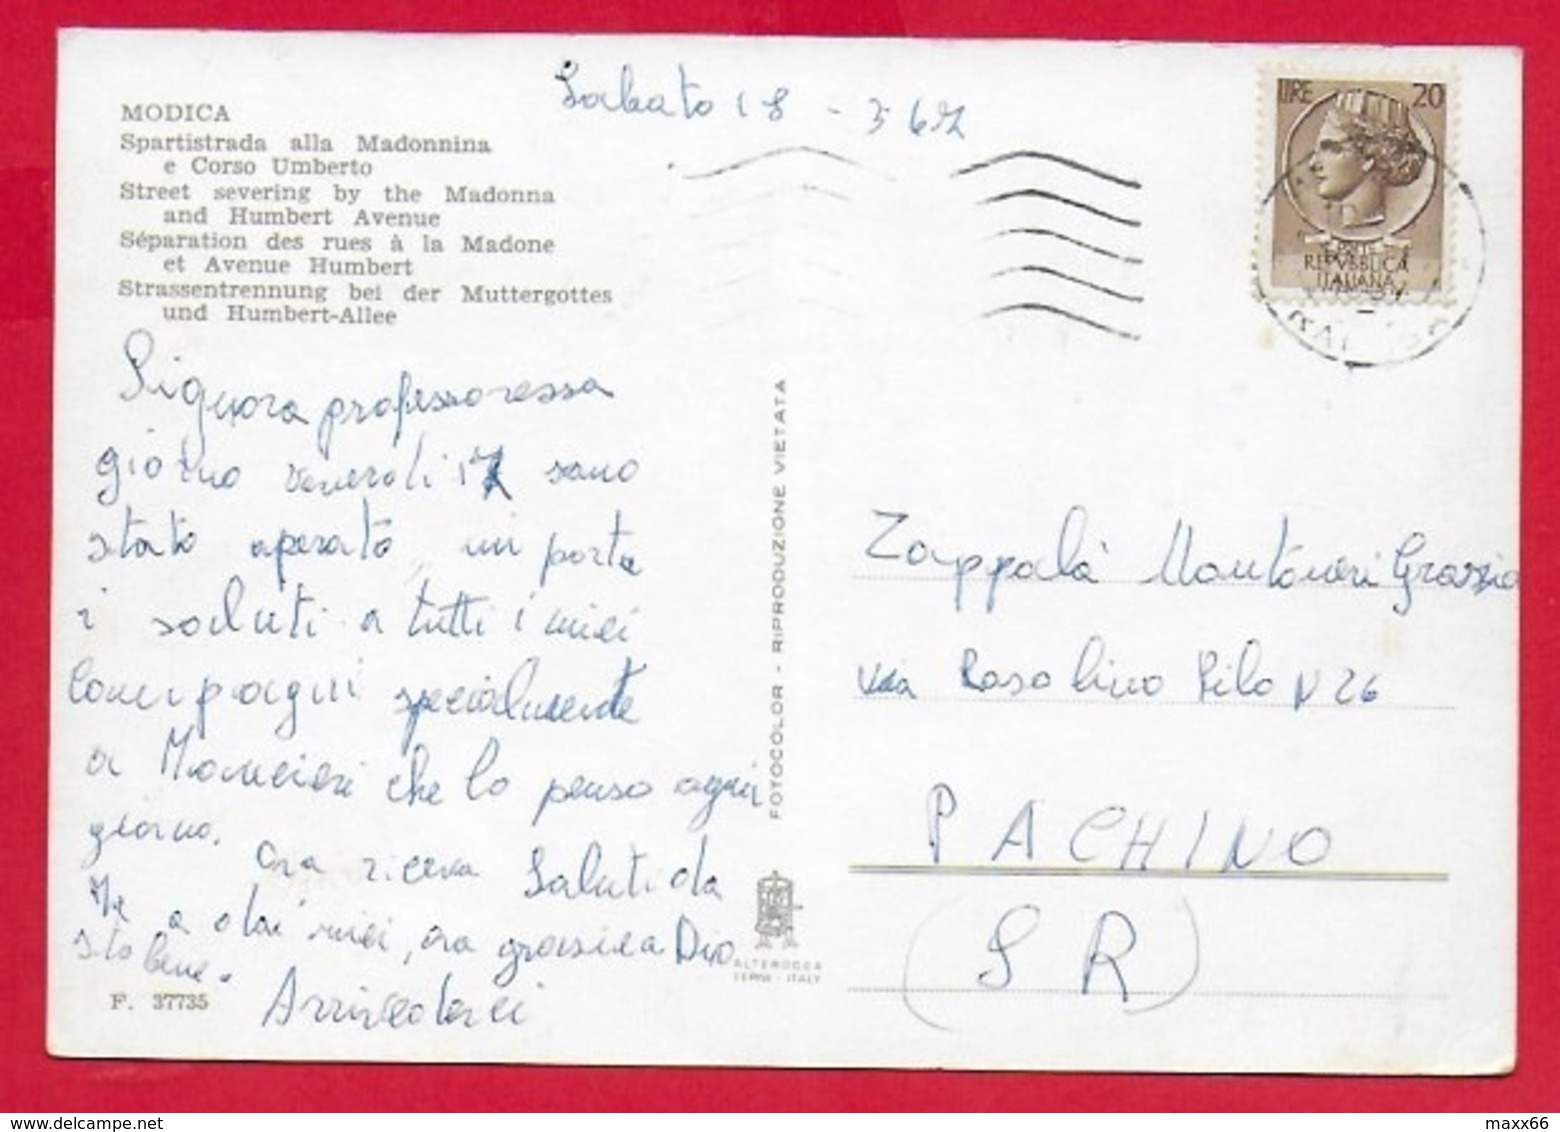 MODICA
Spartistrada alla Madonnina
e Corso Umberto
Street severing by the Madonna
and Humbert Avenue
Séparation des rues à la Madone
et Avenue Humbert
Strassentrennung bei der Muttergottes
und Humbert-Allee
Sabato 18 - 3 67
LIRE 20
POSTE
REPVBBLICA
ITALIANA
Signora professoressa
giorno venerdi 17 sono
stato operato, mi porta
i saluti a tutti i miei
compagni specialmente
a Moncieri che lo penso ogni
giorno. Ora riceva Saluti da
Me a dai miei, ora grazie a Dio
sto bene. Arrivederci
F. 37735
FOTOCOLOR - RIPRODUZIONE VIETATA
ALTEROCCA
TERNI - ITALY
Zappalà Grazia
via Rosolino Pilo N 26
PACHINO
(SR)
maxx66